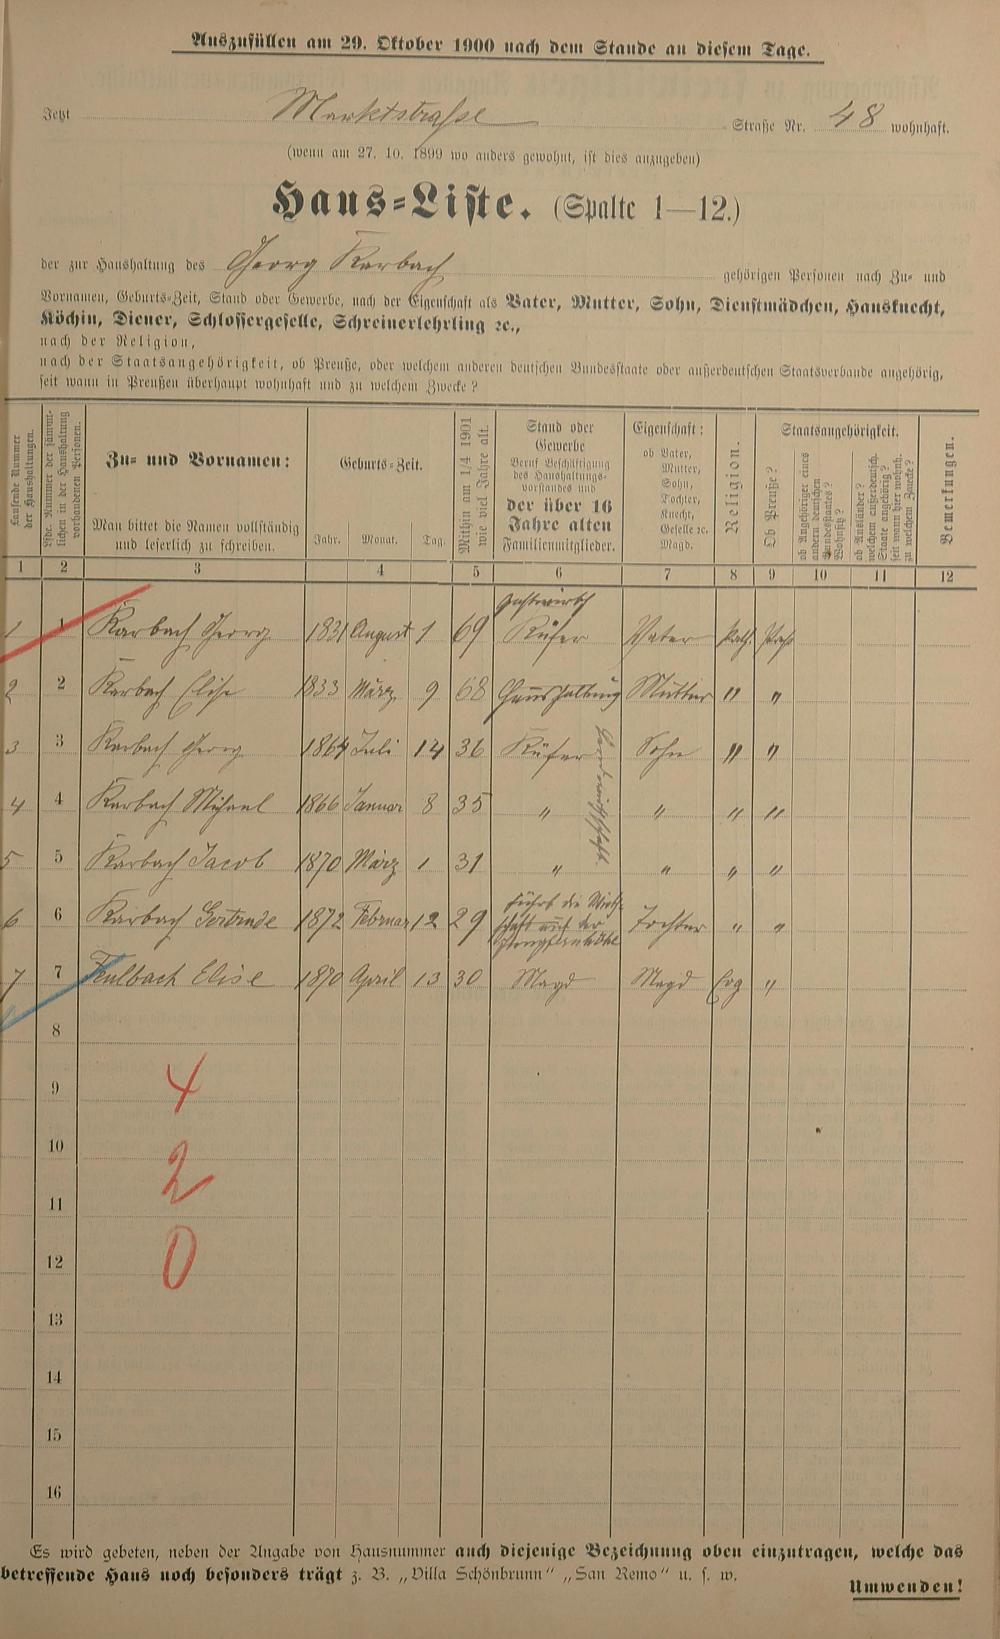 Auszufüllen am 29. Oktober 1900 nach dem Stande an diesem Tage.
Jetzt Marktstraße Straße Nr. 48 wohnhaft.
(wenn am 27. 10. 1899 wo anders gewohnt, ist dies anzugeben)
Haus-Liste. (Spalte 1—12.)
der zur Haushaltung des Georg Karbach gehörigen Personen nach Zu- und
Vornamen, Geburts-Zeit, Stand oder Gewerbe, nach der Eigenschaft als Vater, Mutter, Sohn, Dienstmädchen, Hausknecht,
Köchin, Diener, Schlossergeselle, Schreinerlehrling ꝛc.,
nach der Religion,
nach der Staatsangehörigkeit, ob Preuße, oder welchem anderen deutschen Bundesstaate oder außerdeutschen Staatsverbande angehörig,
seit wann in Preußen überhaupt wohnhaft und zu welchem Zwecke?
Laufende Nummer der Haushaltungen.
Lfde. Nummer der sämmtlichen in der Haushaltung vorhandenen Personen.
Zu- und Vornamen:
Man bittet die Namen vollständig
und leserlich zu schreiben.
Geburts-Zeit.
Jahr. Monat. Tag.
Mithin am 1/4 1901
wie viel Jahre alt.
Stand oder
Gewerbe
Beruf Beschäftigung
des Haushaltungs-
vorstandes und
der über 16
Jahre alten
Familienmitglieder.
Eigenschaft:
ob Vater,
Mutter,
Sohn,
Tochter,
Knecht,
Geselle ꝛc.
Magd.
Religion.
Staatsangehörigkeit.
Ob Preuße?
ob Angehöriger eines
andern deutschen
Bundesstaates?
Wohnsitz?
ob Ausländer?
welchem außerdeutsch.
Staate angehörig?
seit wann hier wohnh.
zu welchem Zwecke?
Bemerkungen.
1 2 3 4 5 6 7 8 9 10 11 12
Gastwirth
1 1 Karbach Georg 1831 August 1 69 Küfer Vater Kath. Preuß
2 2 Karbach Elise 1833 März 9 68 Haushaltung Mutter " "
3 3 Karbach Georg 1864 Juli 14 36 Küfer Sohn " "
4 4 Karbach Michael 1866 Januar 8 35 " " " "
5 5 Karbach Jacob 1870 März 1 31 " " " "
6 6 Karbach Gertrude 1872 Februar 12 29 führt die Wirth-
schaft auf der Tochter " "
7 7 Elise 1870 April 13 30 Magd Magd Evg "
8
9 4
10
2
11
12 0
13
14
15
16
Es wird gebeten, neben der Angabe von Hausnummer auch diejenige Bezeichnung oben einzutragen, welche das
betreffende Haus noch besonders trägt z. B. „Villa Schönbrunn“ „San Remo“ u. s. w.
Umwenden!